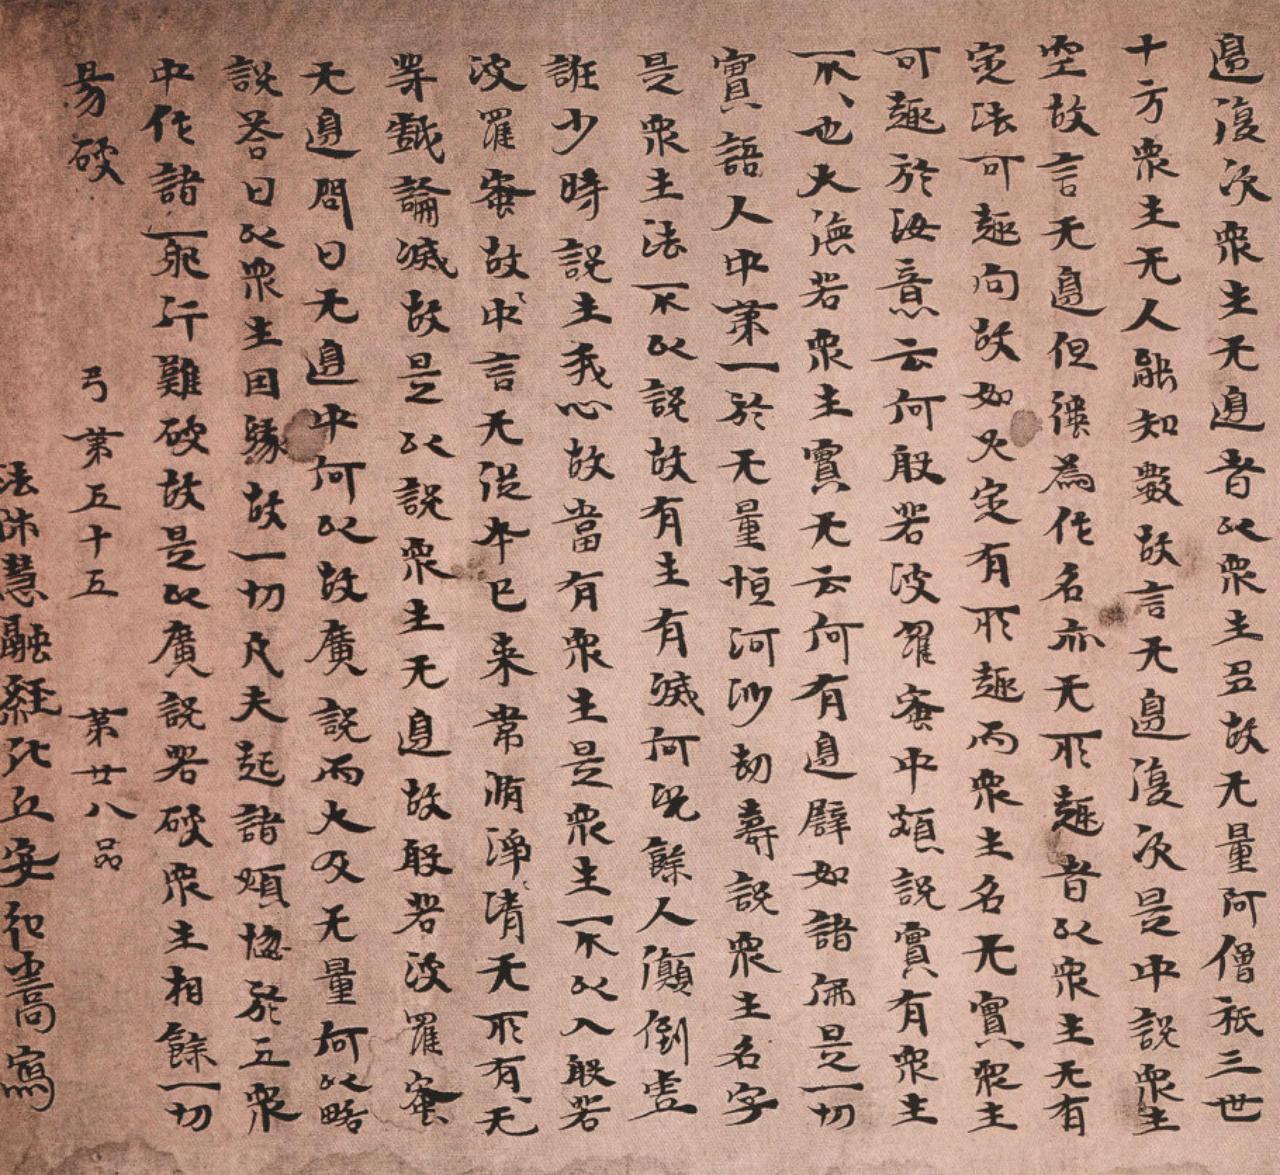 邊復次衆生无邊者以衆生多故无量阿僧祇三世
十方衆生无人能知數故言无邊復次是中説衆生
空故言无邊但彊為作名亦无所趣者以衆生无有
定法可趣向故如火定有所趣而衆生名无實衆生
可趣於汝意云何般若波羅蜜中頗説實有衆生
不不也大德若衆生實无云何有邊譬如諸佛是一切
實語人中第一於无量恒河沙劫壽説衆生名字
是衆生法不以説故有生有滅何況餘人顛倒虛
誑少時説生我心故當有衆生是衆生不以入般若
波羅蜜故故中言无從本已来常清淨淨清无所有无
等戲論滅故是以説衆生无邊故般若波羅蜜
无邊問曰无邊中何以故廣説而大及无量何以略
説答曰以衆生因緣故一切凡夫起諸煩惱於五衆
中作諸耶行難破故是以廣説若破衆生相餘一切
易破
弓第五十五 第廿八品
法師慧融經比丘安弘嵩寫